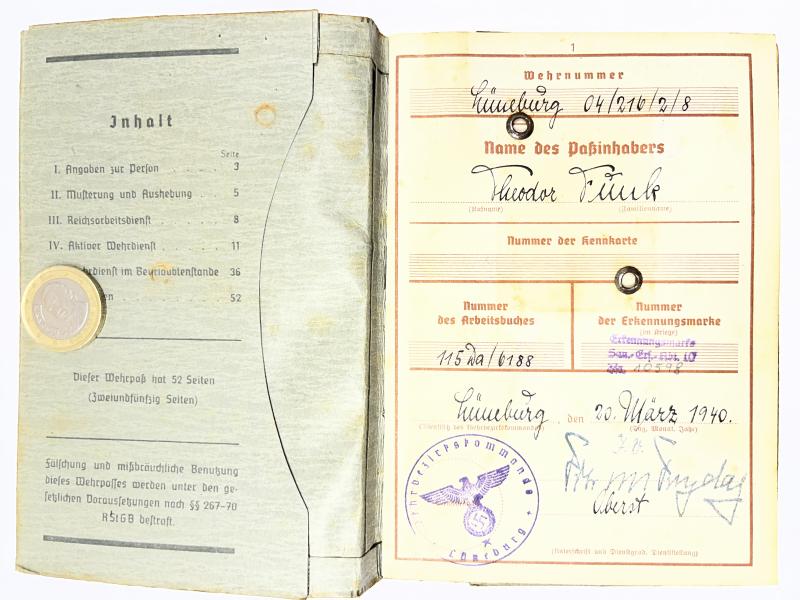 Inhalt
Seite
I. Angaben zur Person . . . . 3
II. Musterung und Aushebung . . 5
III. Reichsarbeitsdienst . . . . 8
IV. Aktiver Wehrdienst . . . . 11
rdienst im Beurlaubtenstande 36
en . . . . 52
Dieser Wehrpaß hat 52 Seiten
(Zweiundfünfzig Seiten)
Fälschung und mißbräuchliche Benutzung
dieses Wehrpasses werden unter den ge-
setzlichen Voraussetzungen nach §§ 267-70
RStGB bestraft.
1
Wehrnummer
Lüneburg 04/216/2/8
Name des Paßinhabers
Theodor Funk
(Rufname) (Familienname)
Nummer der Kennkarte
Nummer
des Arbeitsbuches
115 Da/6188
Nummer
der Erkennungsmarke
(im Kriege)
Erkennungsmarke
San.-Ers.-Abt. 10
No. 10598
Lüneburg, den 20. März 1940.
(Dienstsitz des Wehrbezirkskommandos) (Tag, Monat, Jahr)
J. V.
Oberst
(Unterschrift und Dienstgrad, Dienststellung)
Wehrbezirkskommando
Lüneburg